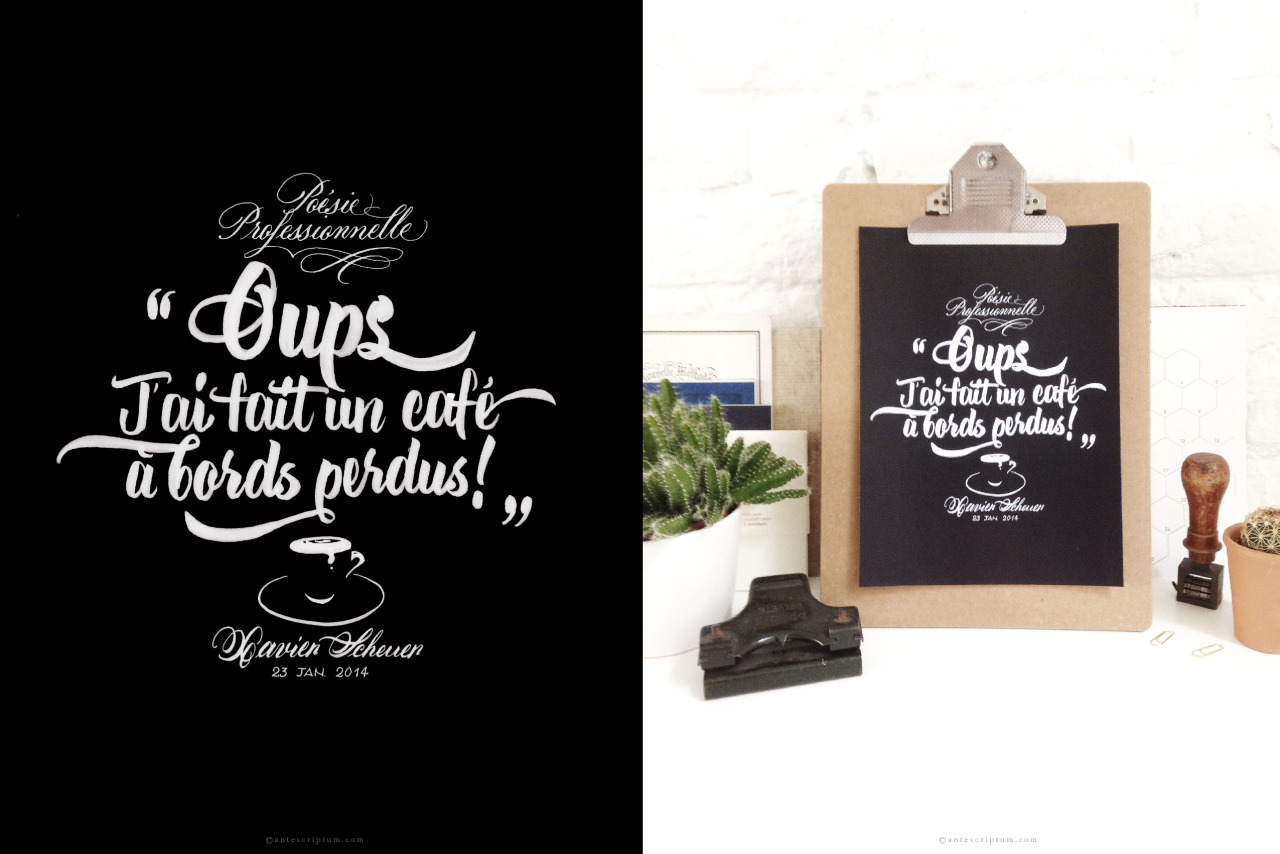 Poésie
Professionnelle
“ Oups
J'ai fait un café
à bords perdus! ”
Xavier Scheuer
23 JAN. 2014
©antescriptum.com
Poésie
Professionnelle
“ Oups
J'ai fait un café
à bords perdus! ”
Xavier Scheuer
23 JAN. 2014
©antescriptum.com